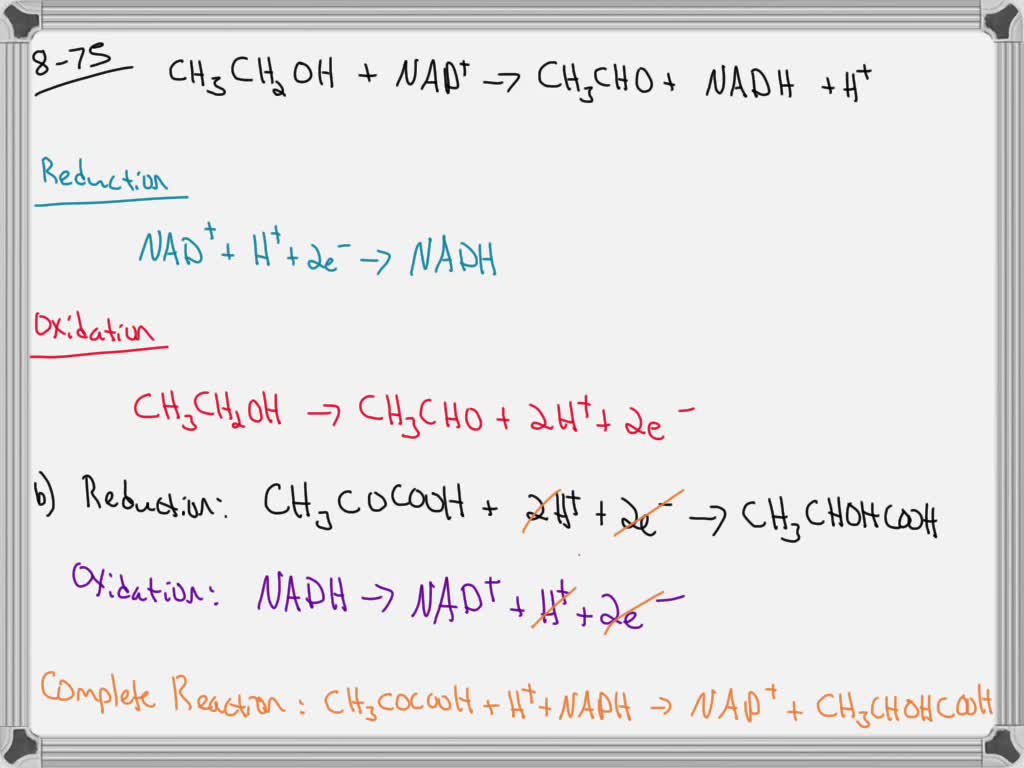 8-75 CH₃CH₂OH + NAD⁺ → CH₃CHO + NADH + H⁺
Reduction
NAD⁺ + H⁺ + 2e⁻ → NADH
Oxidation
CH₃CH₂OH → CH₃CHO + 2H⁺ + 2e⁻
b) Reduction: CH₃COCOOH + 2H⁺ + 2e⁻ → CH₃CHOHCOOH
Oxidation: NADH → NAD⁺ + H⁺ + 2e⁻
Complete Reaction: CH₃COCOOH + H⁺ + NADH → NAD⁺ + CH₃CHOHCOOH